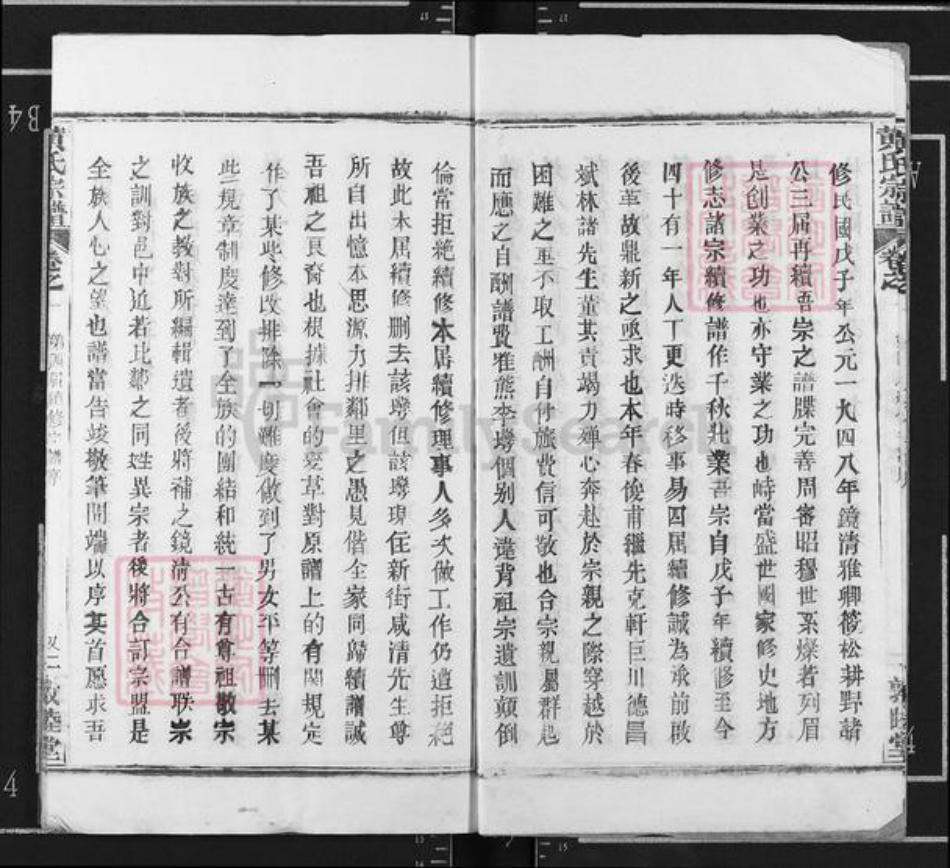 修民國戊子年公元一九四八年鏡清雅卿筱松耕野諸
公三届再續吾宗之譜牒完善周審昭穆世系燦若列眉
是創業之功也亦守業之功也時當盛世國家修史地方
修志諸宗續修譜作千秋壯業吾宗自戊子年續修至今
四十有一年人丁更迭時移事易四届續修誠為承前啟
後革故鼎新之亟求也本年春俊甫繼先克軒巨川德昌
斌林諸先生董其責竭力殫心奔赴於宗親之際穿越於
困難之重不取工酬自付旅費信可敬也合宗親屬群起
而應之自酬譜費雅熊李塆個别人違背祖宗遺訓顛倒
倫常拒絶續修本届續修理事人多次做工作仍遭拒絶
故此本届續修删去該塆但該塆現住新街咸清先生尊
所自出憶本思源力排鄰里之愚見偕全家同歸續譜誠
吾祖之良裔也根據社會的変革對原譜上的有関規定
作了某些修改排除一切難度做到了男女平等删去某
些規章制度達到了全族的團結和統一古有尊祖敬宗
收族之教對所編輯遺者後將補之鏡清公有合譜联宗
之訓對邑中近者比鄰之同姓異宗者後將合訂宗盟是
全族人心之望也譜當告竣敬筆開端以序其首愿求吾
黄氏宗譜
卷之一
又二
敦睦堂
黄氏宗譜
卷之
敦睦堂
FamilySearch
B4
4